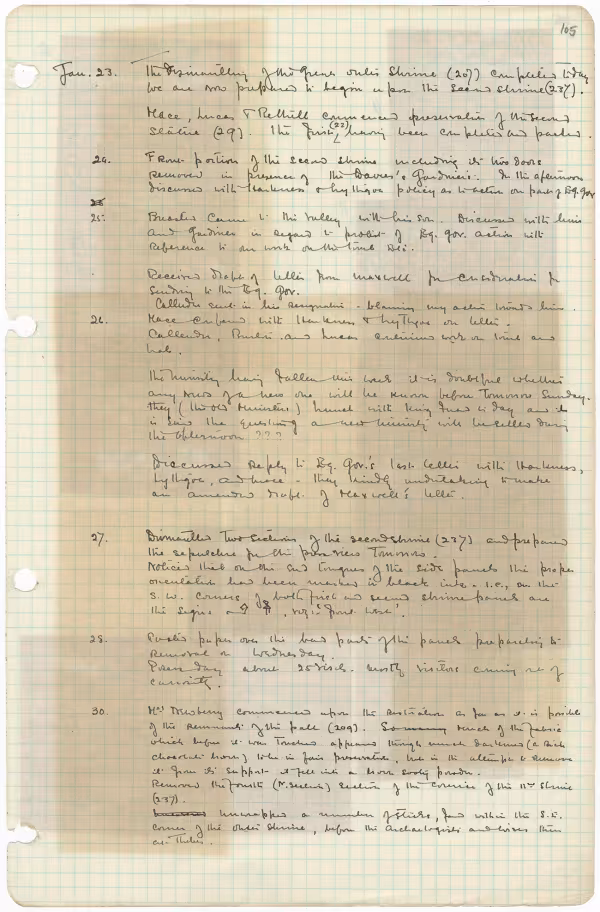 105
Jan. 23. The dismantling of the Great outer Shrine (207) completed today
we are now prepared to begin upon the second shrine (237).
Mace, Lucas & Bethell commenced preservation of the second
statue (29). The first (22) having been completed and packed.
24. Front portion of the second shrine including its two doors
removed in presence of the Davies's & Gardiners. In the afternoon
discussed with Harkness & Lythgoe policy as to action on part of Eg. Gov
25. Breasted came to the Valley with his son. Discussed with him
and Gardiner in regard to protest of Eg. Gov. action with
reference to our work on the tomb etc.
Received draft of letter from Maxwell for consideration for
sending to the Eg. Gov.
Callender sent in his resignation - blaming my action towards him.
26. Mace conferred with Harkness & Lythgoe on letter.
Callender, Burton and Lucas continued work on tomb and
lab.
The Ministry having fallen this week it is doubtful whether
any news of a new one will be known before tomorrow Sunday.
they (the old Ministers) lunch with King Fuad to day and it
is said the question of a new ministry will be settled during
the afternoon ???
Discussed reply to Eg. Gov.'s last letter with Harkness,
Lythgoe, and Mace - they kindly undertaking to make
an amended draft of Maxwell's letter.
27. Dismantled two sections of the second shrine (237) and prepared
the sepulchre for the press views tomorrow.
Noticed that on the end tongues of the side panels the proper
orientation had been marked in black ink. i.e., on the
S.W. corners of both first and second shrine panels are
the signs and , viz: 'front West'.
28. Pasted paper over the bad parts of the panels preparatory to
removal on Wednesday.
Press day about 25 visit. mostly visitors coming out of
curiosity.
30. Mrs Newberry commenced upon the restoration as far as it is possible
of the remnants of the pall (209). much of the fabric
which before it was touched appeared though much darkened (a rich
chocolate brown) to be in fair preservation, but in the attempt to remove
it from its support it fell into a brown sooty powder.
Removed the fourth (N. section) section of the cornice of the IInd Shrine
(237).
unwrapped a number of sticks, found within the S.E.
corner of the outer shrine, before the Archaeologists and wives
at Thebes.